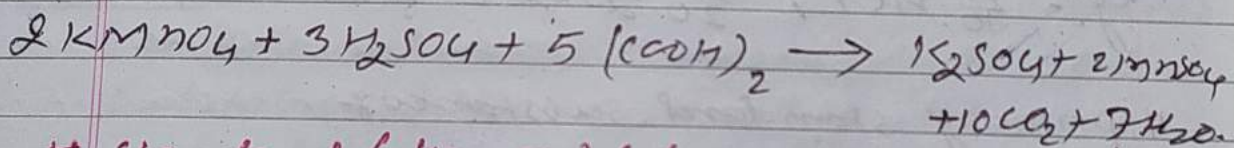 2KMnO4 + 3H2SO4 + 5(COOH)2 → K2SO4 + 2MnSO4
+10CO2 + 7H2O.